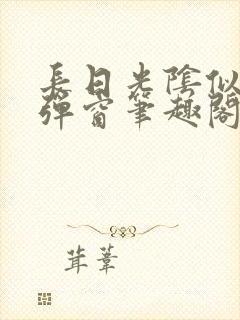 長日光陰似
彈窗筆趣閣
茸葦